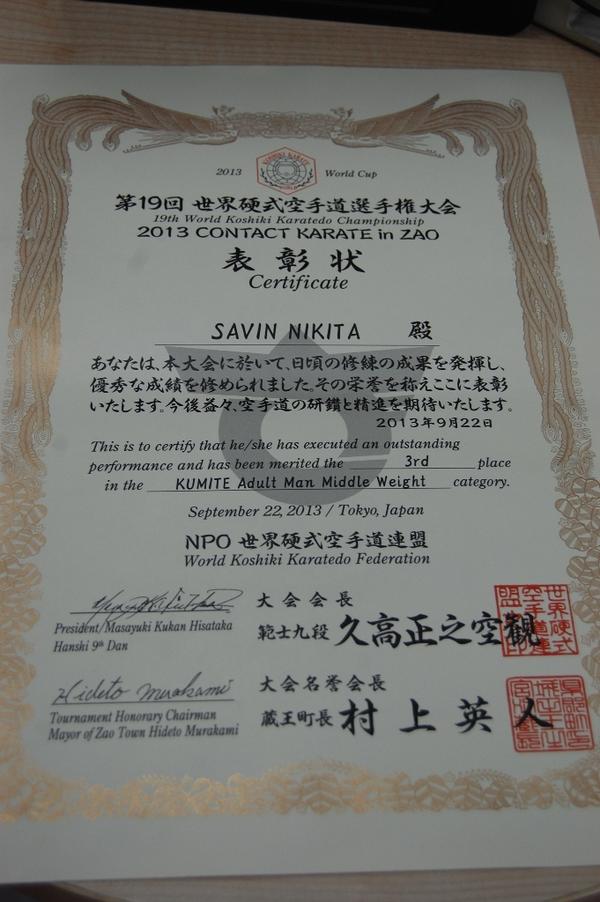 2013 World Cup
第19回 世界硬式空手道選手権大会
19th World Koshiki Karatedo Championship
2013 CONTACT KARATE in ZAO
表彰状
Certificate
SAVIN NIKITA 殿
あなたは、本大会に於いて、日頃の修練の成果を発揮し、
優秀な成績を修められました。その栄誉を称えここに表彰
いたします。今後益々、空手道の研鑽と精進を期待いたします。
2013年9月22日
This is to certify that he/she has executed an outstanding
performance and has been merited the 3rd place
in the KUMITE Adult Man Middle Weight category.
September 22, 2013 / Tokyo, Japan
NPO 世界硬式空手道連盟
World Koshiki Karatedo Federation
大会会長
President/Masayuki Kukan Hisataka
Hanshi 9th Dan
範士九段 久高正之空観
世界硬式
空手道連
盟
Hideto Murakami
大会名誉会長
Tournament Honorary Chairman
Mayor of Zao Town Hideto Murakami
蔵王町長 村上英人